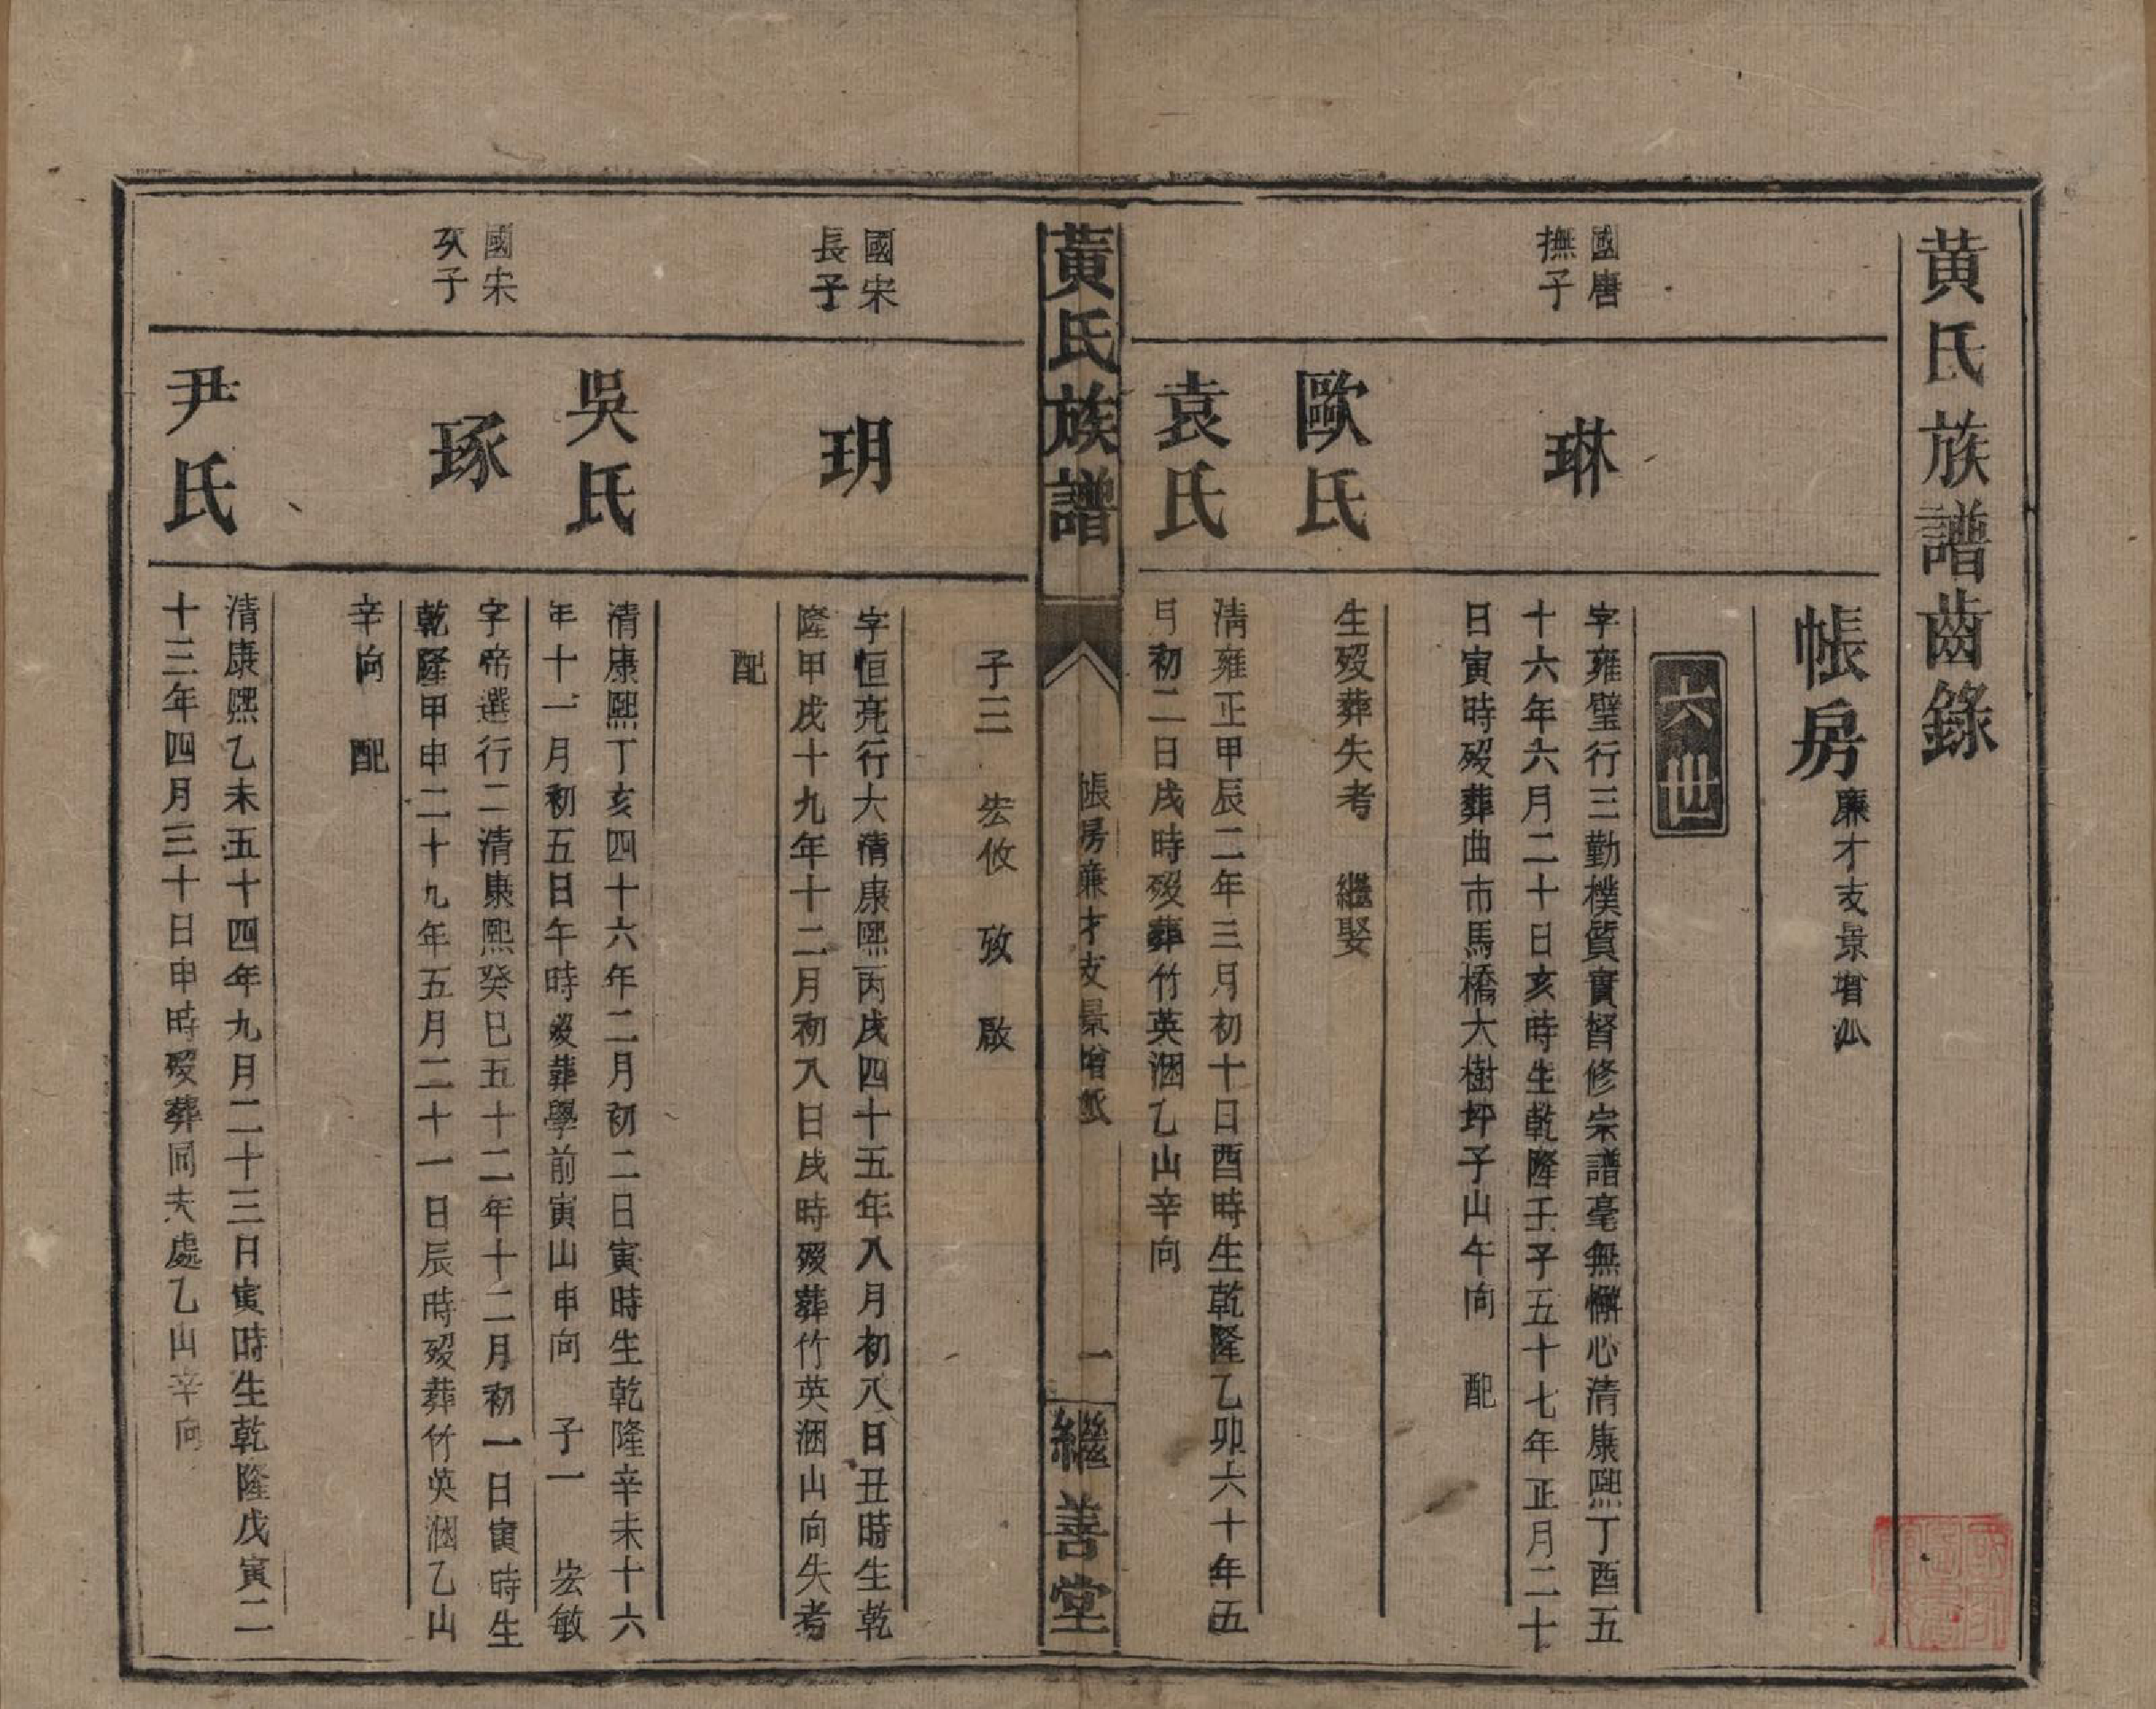 黃氏族譜齒錄
帳房廉才支景增公
六世
國唐
撫子
琳
字雍璧行三勤樸質實督修宗譜毫無懈心清康熙丁酉五
十六年六月二十日亥時生乾隆壬子五十七年正月二十
日寅時歿葬曲市馬橋大樹坪子山午向 配
歐氏
生歿葬失考 繼娶
袁氏
清雍正甲辰二年三月初十日酉時生乾隆乙卯六十年五
月初二日戌時歿葬竹英洇乙山辛向
黃氏族譜
帳房廉才支景增派
一
繼善堂
子三 宏攸 攷 啟
國宋
長子
玥
字恒亮行大清康熙丙戌四十五年八月初八日丑時生乾
隆甲戌十九年十二月初八日戌時歿葬竹英洇山向失考
配
吳氏
清康熙丁亥四十六年二月初二日寅時生乾隆辛未十六
年十一月初五日午時歿葬學前寅山申向 子一 宏敏
國宋
次子
琢
字帝選行二清康熙癸巳五十二年十二月初一日寅時生
乾隆甲申二十九年五月二十一日辰時歿葬竹英洇乙山
辛向 配
尹氏
清康熙乙未五十四年九月二十三日寅時生乾隆戊寅二
十三年四月三十日申時歿葬同夫處乙山辛向